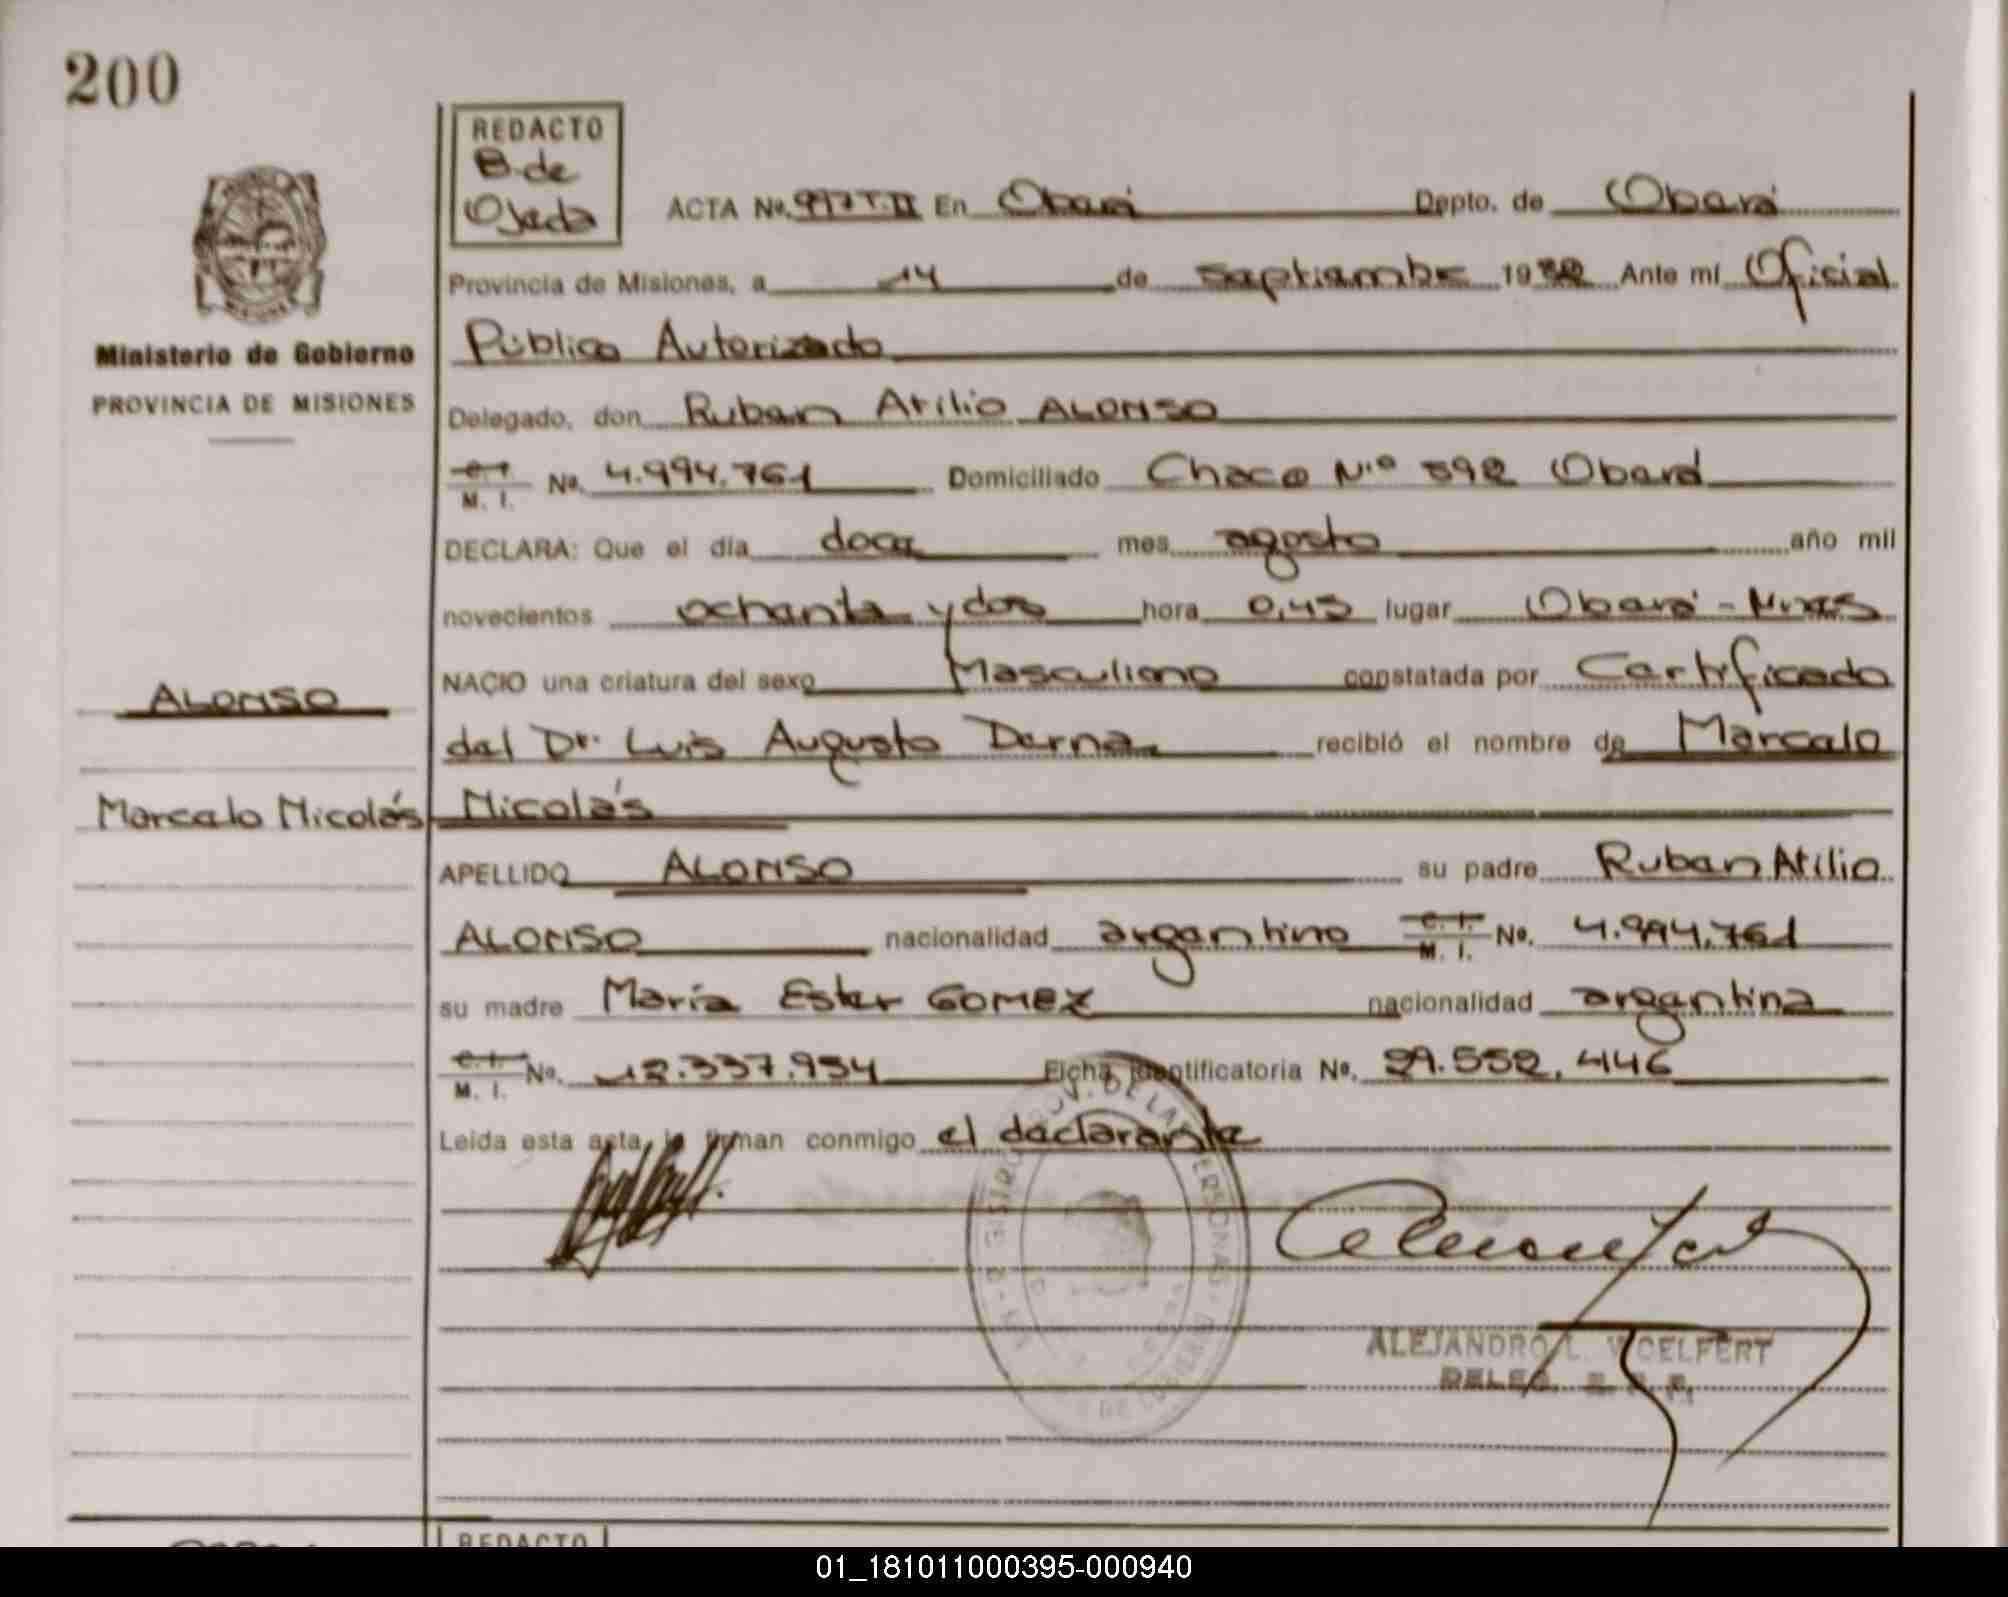 200
REDACTO
B. de
Ojeda
ACTA No. 997 T.II En Oberá Depto. de Oberá
Provincia de Misiones, a 14 de septiembre 1982 Ante mí Oficial
Público Autorizado
Ministerio de Gobierno
PROVINCIA DE MISIONES
Delegado, don Ruben Atilio ALONSO
C. I.
M. I. No. 4.994.761 Domiciliado Chaco N.º 592 Oberá
DECLARA: Que el día doce mes agosto año mil
novecientos ochenta y dos hora 0,45 lugar Oberá - Mnes
ALONSO
NACIO una criatura del sexo Masculino constatada por Certificado
del Dr. Luis Augusto Derna recibió el nombre de Marcelo
Marcelo Nicolás
Nicolás
APELLIDO ALONSO su padre Ruben Atilio
ALONSO nacionalidad argentino C. I. M. I. No. 4.994.761
su madre María Ester GOMEZ nacionalidad argentina
C. I.
M. I. No. 12.337.954 Ficha Identificatoria No. 29.552.446
Leída esta acta, la firman conmigo el declarante
ALEJANDRO L. WOELFERT
DELEG. R. P.
REDACTO
01_181011000395-000940